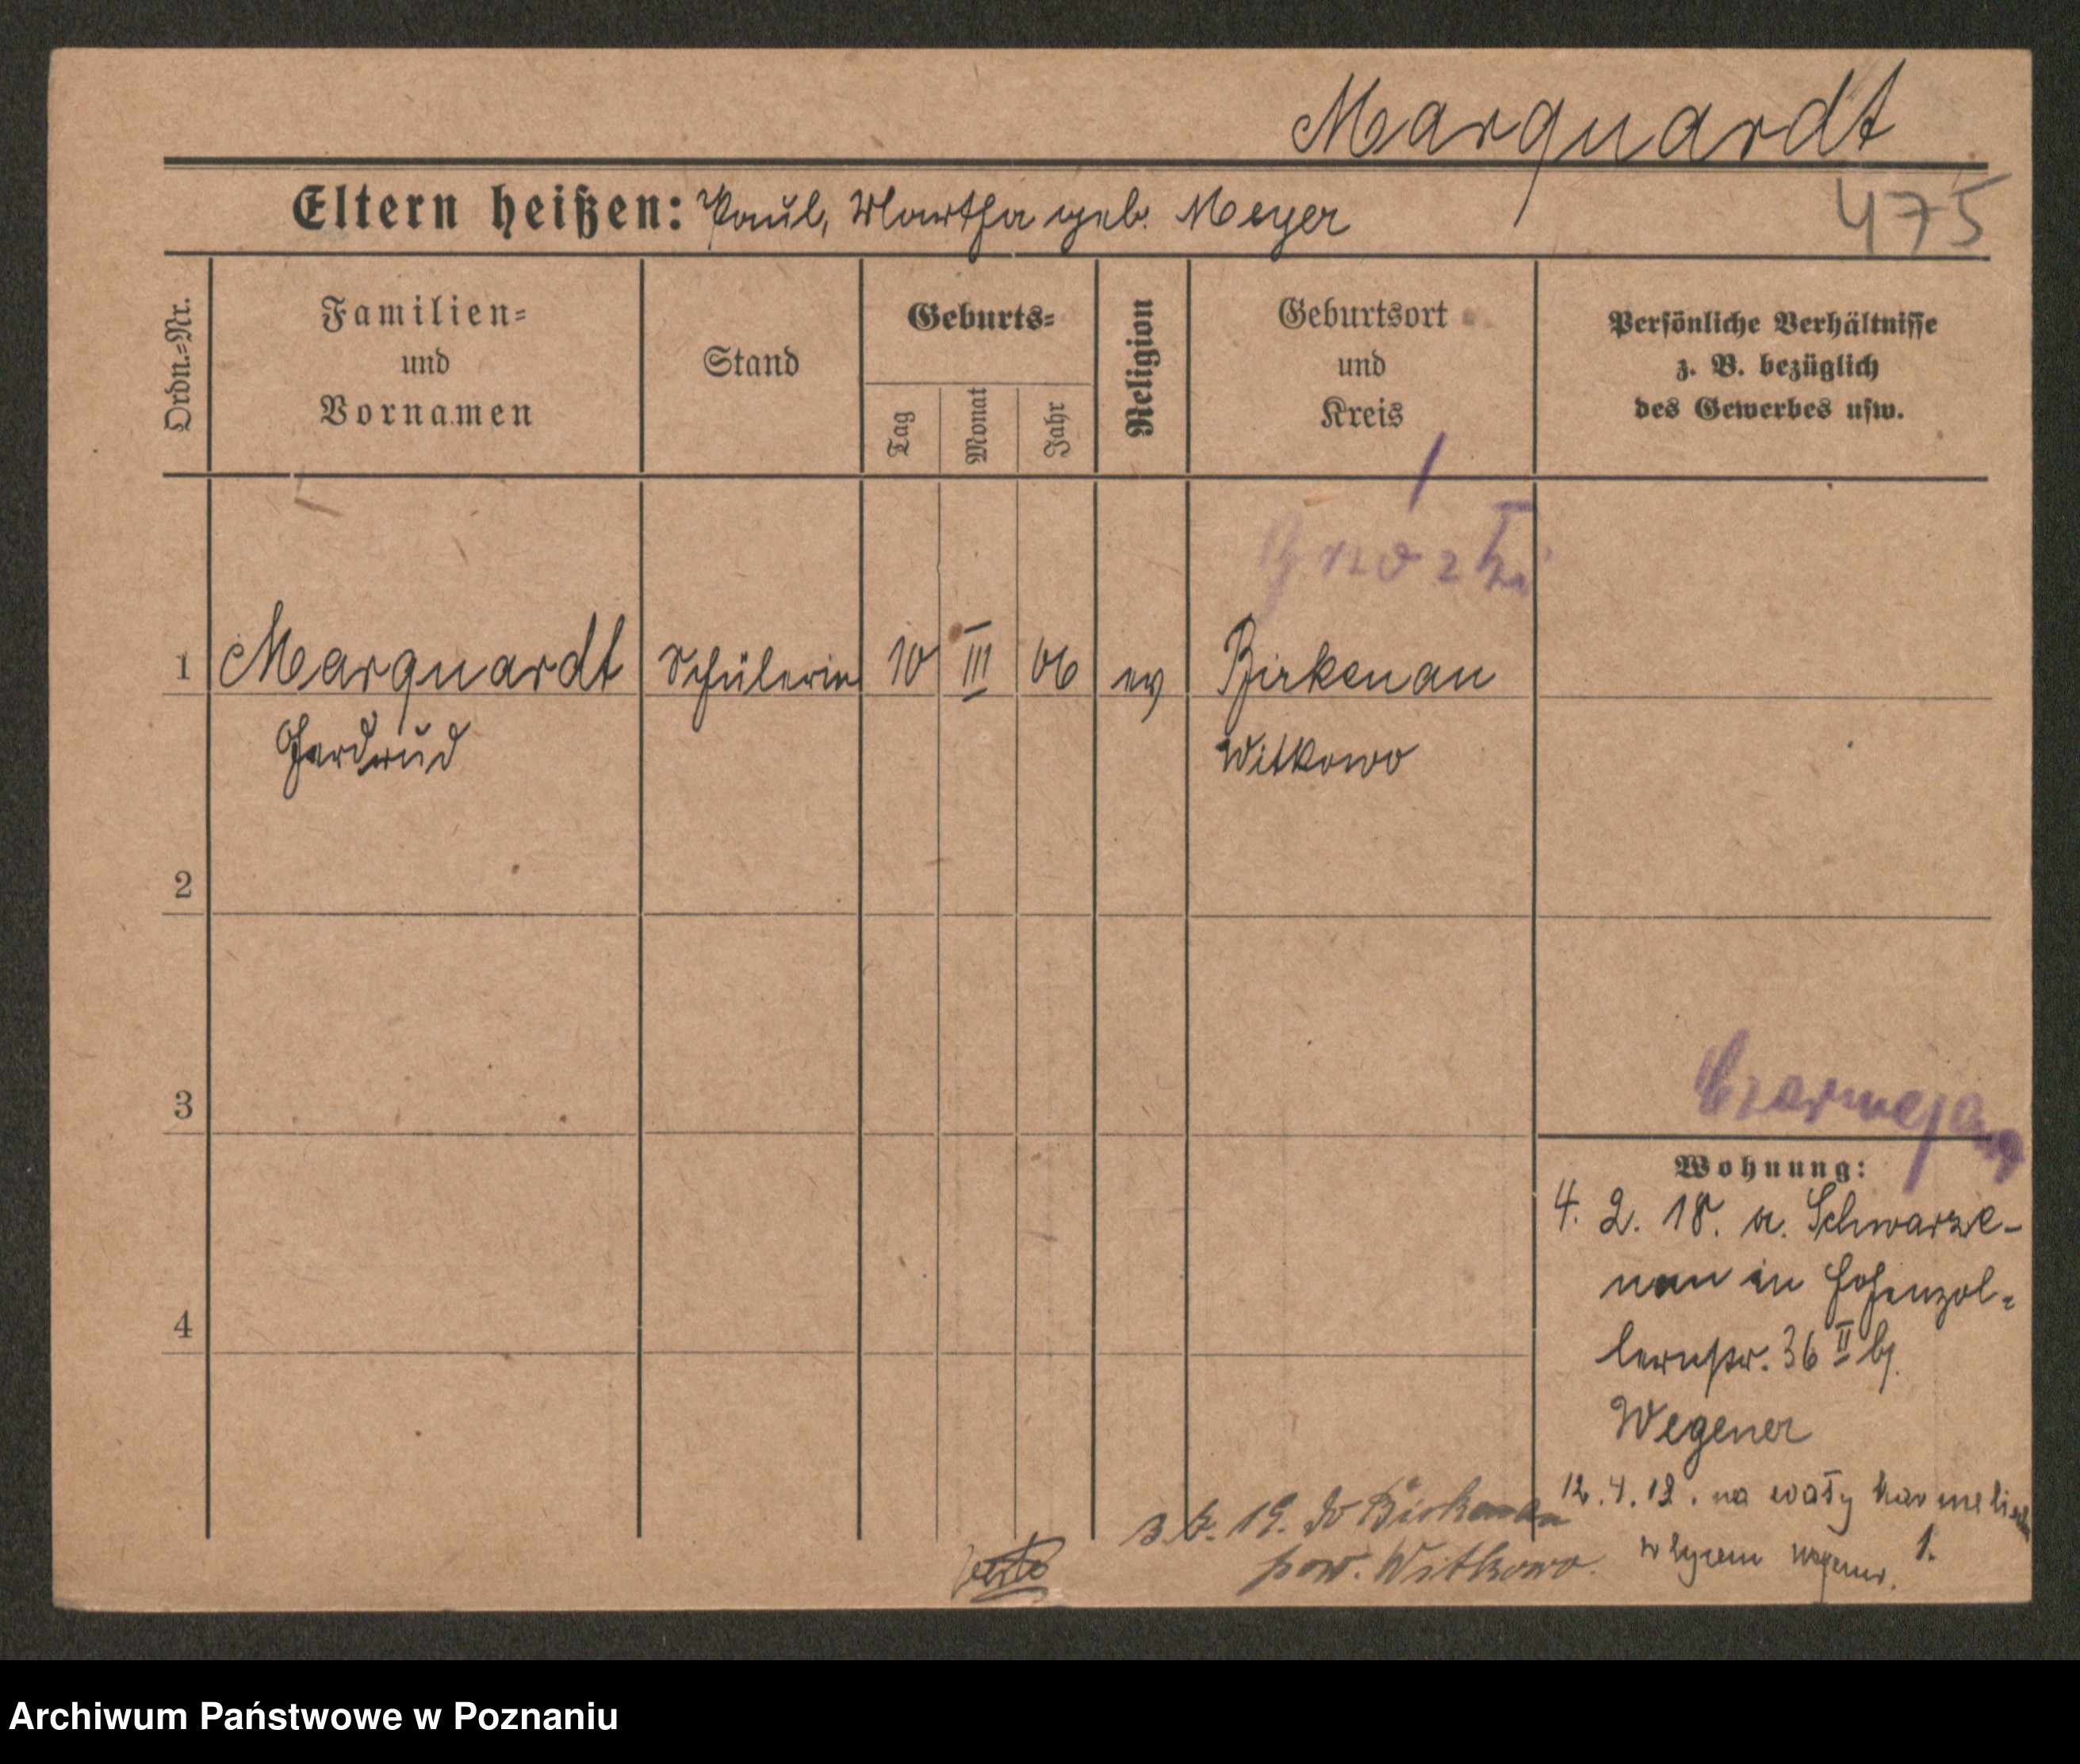 Marquardt
475
Eltern heißen: Paul, Martha geb. Meyer
Ordn.=Nr.
Familien=
und
Vornamen
Stand
Geburts=
Tag
Monat
Jahr
Religion
Geburtsort
und
Kreis
Persönliche Verhältnisse
z. B. bezüglich
des Gewerbes usw.
1
Marquardt
Schülerin
10
III
06
ev
Birkenau
Gerdrud
Witkowo
2
3
4
Wohnung:
4. 2. 18. a. Schwarze-
nau in Hohenzol=
lernstr. 36 II bj.
Wegener
na wały
1.
19. do Birkenau
pow. Witkowo.
Archiwum Państwowe w Poznaniu